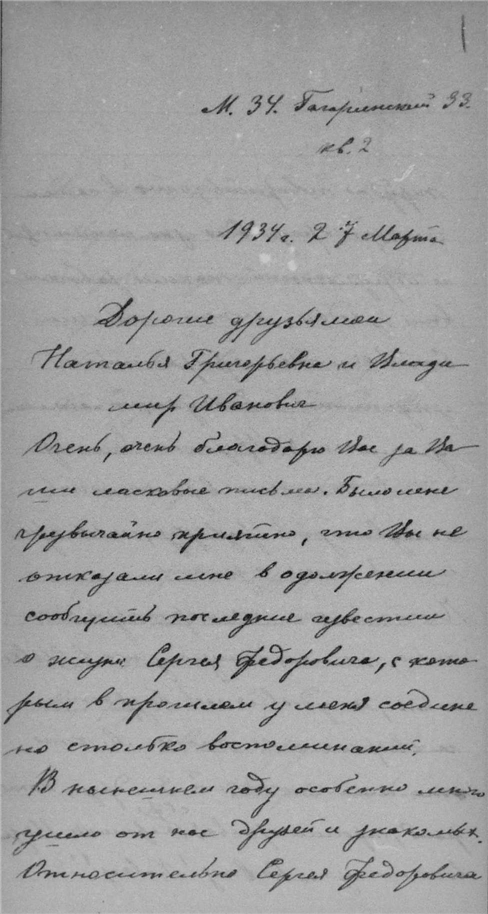 1
М. 34. Гагаринский 33.
кв. 2
1934 г. 27 Марта
Дорогие друзья мои
Наталья Григорьевна и Влади
мир Иванович
Очень, очень благодарю Вас за Ва
ши ласковые письма. Было мне
чрезвычайно приятно, что Вы не
отказали мне в одолжении
сообщить последние известии
о жизни Сергея Федоровича, с кото
рым в прошлом у меня соедине
но столько воспоминаний.
В нынешнем году особенно много
ушло от нас друзей и знакомых.
Относительно Сергея Федоровича